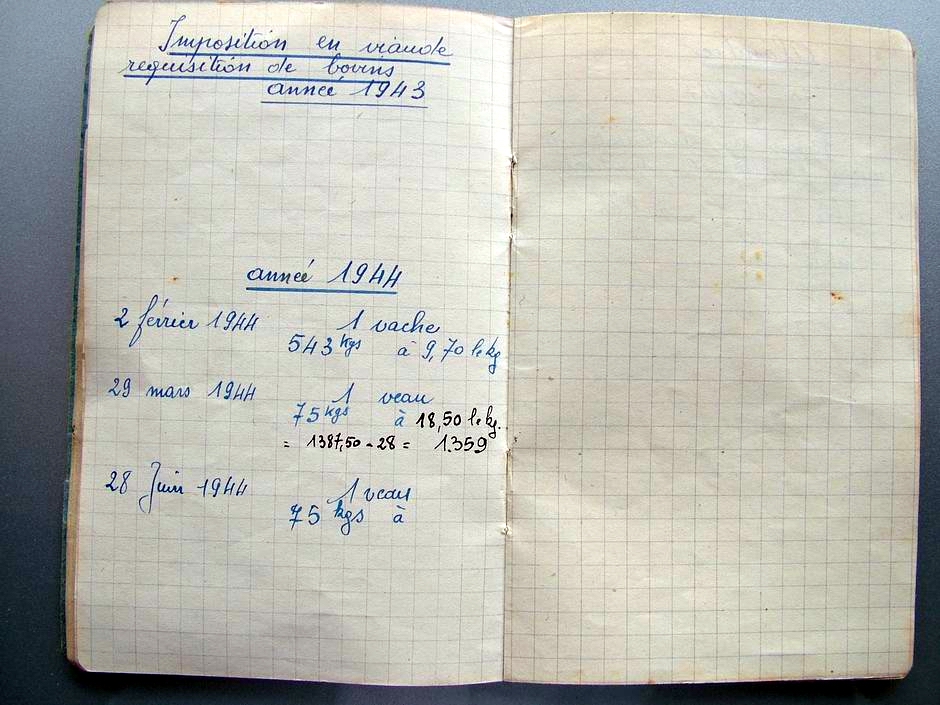 Imposition en viande
requisition de bovins
année 1943
année 1944
2 février 1944 1 vache
543 kgs à 9,70 le kg
29 mars 1944 1 veau
75 kgs à 18,50 le kg.
= 1387,50 - 28 = 1.359
28 Juin 1944 1 veau
75 kgs à